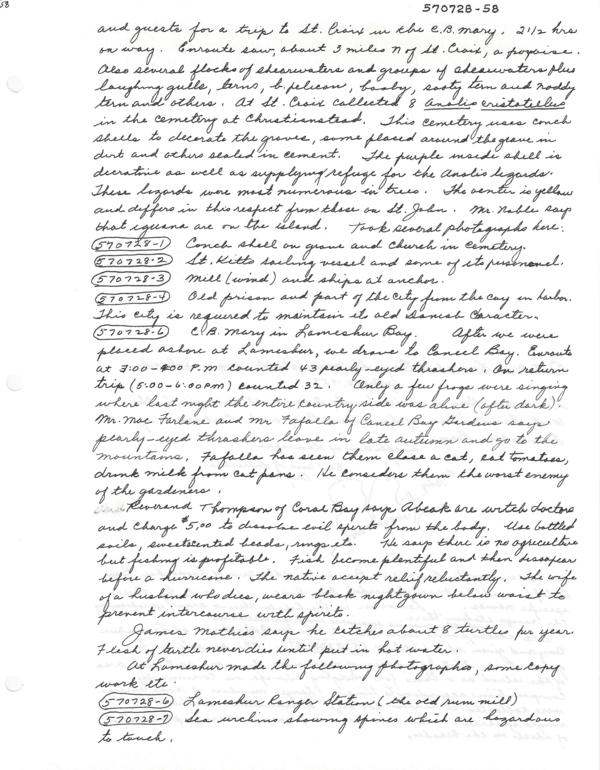 58
570728-58
and guests for a trip to St. Croix in the C.B. Mary. 2 1/2 hrs
on way. Enroute saw, about 3 miles N of St. Croix, a porpoise.
Also several flocks of shearwaters and groups of shearwaters plus
laughing gulls, terns, b. pelican, booby, sooty tern and noddy
tern and others. At St. Croix collected 8 Anolis cristatellus
in the cemetery at Christianstead. This cemetery uses conch
shells to decorate the graves, some placed around the grave in
dirt and others sealed in cement. The purple inside shell is
decrative as well as supplying refuge for the Anolis legards.
These lizards were most numerous in trees. The venter is yellow
and differs in this respect from those on St. John. Mr. Noble says
that iguana are on the island. Took several photographs here:
570728-1 Conch shell on grave and Church in Cemetery.
570728-2 St. Kitts sailing vessel and some of its personnel.
570728-3 Mill (wind) and ships at anchor.
570728-4 Old prison and part of the city from the cay in harbor.
This city is required to maintain its old Danish Caracter.
570728-6 C.B. Mary in Lameshur Bay. After we were
placed ashore at Lameshur, we drove to Caneel Bay. Enroute
at 3:00-4:00 P.M counted 43 pearly-eyed thrashers. On return
trip (5:00-6:00 PM) counted 32. Only a few frogs were singing
where last night the entire country side was alive (after dark).
Mr. Mac Farlane and Mr Fafalla of Caneel Bay Gardens says
pearly-eyed thrashers leave in late autumn and go to the
mountains. Fafalla has seen them chase a cat, eat tomatoes,
drink milk from cat pans. He considers them the worst enemy
of the gardeners.
Reverand Thompson of Coral Bay says Abeak are witch doctors
and charge $5.00 to dissolve evil spirits from the body. Use bottled
soils, sweetscented beads, rings etc. He says there is no agriculture
but fishing is profitable. Fish become plentiful and then dissapear
before a hurricane. The native accept relief reluctantly. The wife
of a husband who dies, wears black nightgown below waist to
prevent intercourse with spirits.
James Mathias says he catches about 8 turtles per year.
Flesh of turtle never dies until put in hot water.
At Lameshur made the following photographs, some copy
work etc.
570728-6 Lameshur Ranger Station (the old rum mill)
570728-7 Sea urchins showing spines which are hazardous
to touch.